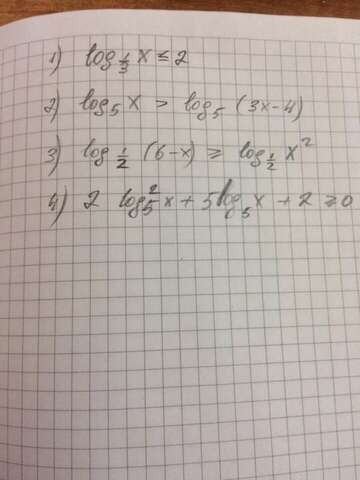 1) log_{1/3} x ≤ 2
2) log_5 x > log_5 (3x-4)
3) log_{1/2} (6-x) ≥ log_{1/2} x^2
4) 2 log_5^2 x + 5 log_5 x + 2 ≥ 0